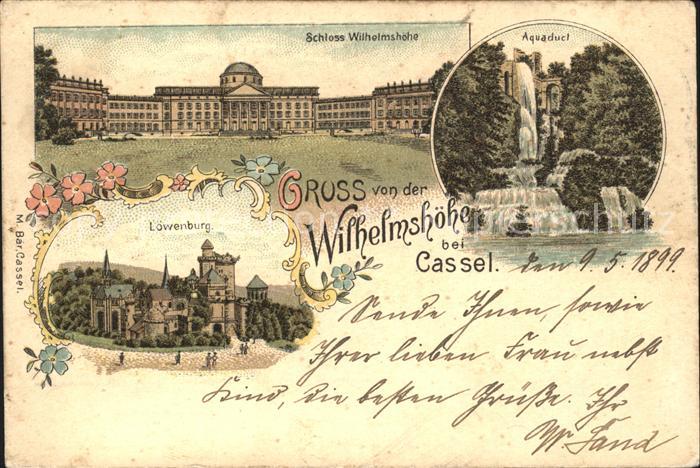 Schloss Wilhelmshöhe
Aquaduct
GRUSS von der
Wilhelmshöhe
bei
Cassel. den 9. 5. 1899.
Löwenburg.
M. Bär, Cassel.
Sende Ihnen, sowie
Ihrer lieben Frau nebst
Kind, die besten Grüße. Ihr
W. Sand